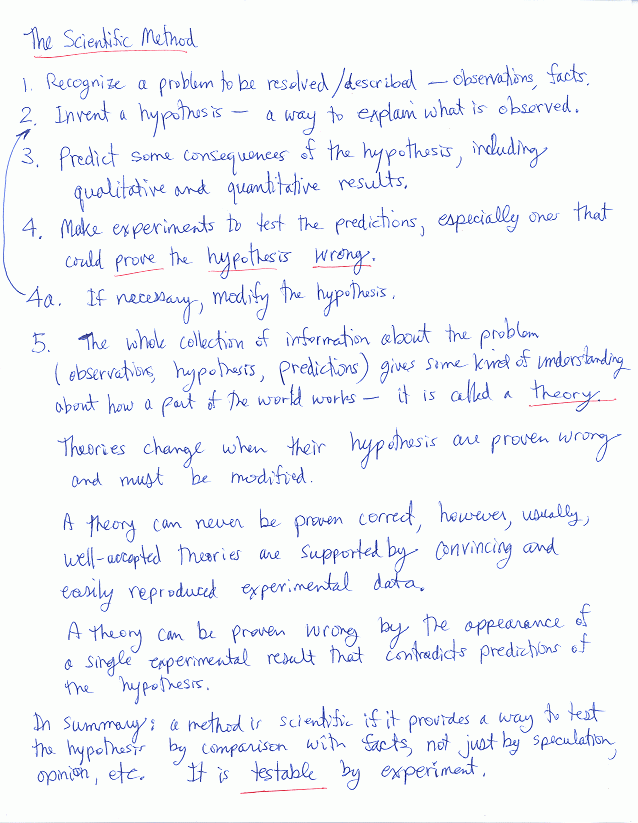 The Scientific Method
1. Recognize a problem to be resolved/described — observations, facts.
2. Invent a hypothesis — a way to explain what is observed.
3. Predict some consequences of the hypothesis, including
qualitative and quantitative results.
4. Make experiments to test the predictions, especially ones that
could prove the hypothesis wrong.
4a. If necessary, modify the hypothesis.
5. The whole collection of information about the problem
(observations, hypothesis, predictions) gives some kind of understanding
about how a part of the world works — it is called a theory.
Theories change when their hypothesis are proven wrong
and must be modified.
A theory can never be proven correct, however, usually,
well-accepted theories are supported by convincing and
easily reproduced experimental data.
A theory can be proven wrong by the appearance of
a single experimental result that contradicts predictions of
the hypothesis.
In summary: a method is scientific if it provides a way to test
the hypothesis by comparison with facts, not just by speculation,
opinion, etc. It is testable by experiment.